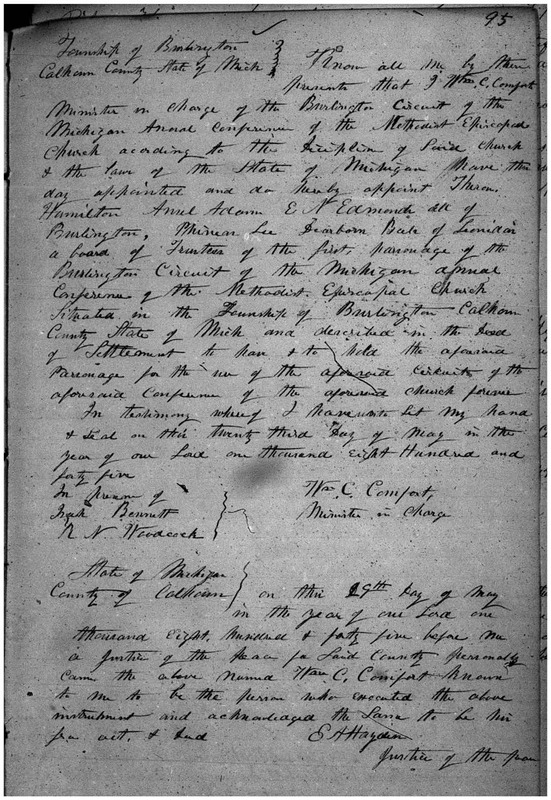 95
Township of Burlington
Calhoun County State of Mich
Know all me by these
presents that I Wm C, Comfort
Minister in Charge of the Burlington Circuit of the
Michigan Anual Conference of the Methodist Episcopal
Church acording to the Decipline of Said Church
& the law of the State of Michigan have this
day appointed and do hereby appoint Theron.
Hamilton Ansel Adams E N Edmonds all of
Burlington, Phinean Lee Dearborn Bale of Leonidas
a board of Trustees of the first parsonage of the
Burlington Circuit of the Michigan annual
Conference of the Methodist Episcopal Church
Situated in the Township of Burlington Calhoun
County State of Mich and described in the Deed
of Settlement to have & to hold the aforesaid
Parsonage for the use of the aforesaid circuits of the
aforesaid Conference of the aforesaid church forever
In testimony whereof I have unto Set My hand
& Seal on this twenty third Day of May in the
year of our Lord one thousand Eight Hundred and
forty five
In presence of
Bennett
R N Woodcock
Wm C. Comfort,
Minister in Charge
State of Michigan
County of Calhoun
on this 29th Day of May
in the year of our Lord one
thousand Eight, hundred & forty five before me
a Justice of the Peace for Said County personally
came the above named Wm C, Comfort Known
to me to be the person who executed the above
instrument and acknowledged the Same to be his
free act, & deed
E A Hayden
Justice of the peace